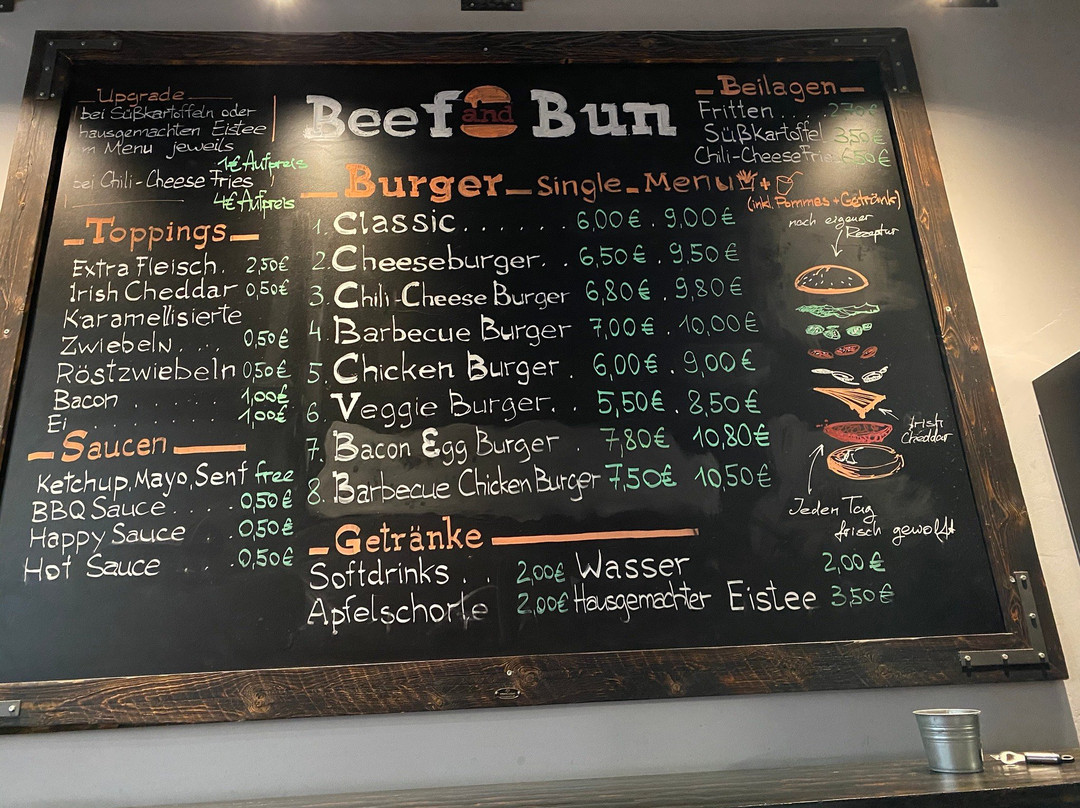 Upgrade
bei Süßkartoffeln oder
hausgemachten Eistee
im Menu jeweils
1€ Aufpreis
bei Chili-Cheese Fries
4€ Aufpreis
Toppings
Extra Fleisch. 2,50€
Irish Cheddar 0,50€
Karamellisierte
Zwiebeln... 0,50€
Röstzwiebeln 0,50€
Bacon . . 1,00€
Ei . . . . 1,00€
Saucen
Ketchup, Mayo, Senf free
BBQ Sauce..... 0,50€
Happy Sauce .. 0,50€
Hot Sauce ... 0,50€
Beef and Bun
Burger Single Menu +
(inkl. Pommes + Getränk)
1. Classic...... 6,00€ . 9,00€
2. Cheeseburger. . 6,50€ . 9,50€
3. Chili-Cheese Burger 6,80€ . 9,80€
4. Barbecue Burger 7,00€ . 10,00€
5. Chicken Burger . 6,00€ . 9,00€
6. Veggie Burger. . 5,50€ . 8,50€
7. Bacon Egg Burger . 7,80€ 10,80€
8. Barbecue Chicken Burger 7,50€ 10,50€
Getränke
Softdrinks . . 2,00€ Wasser 2,00€
Apfelschorle 2,00€ Hausgemachter Eistee 3,50€
Beilagen
Fritten . . 2,70€
Süßkartoffel 3,50€
Chili-Cheese Fries 6,50€
nach eigener
Rezeptur
Irish
Cheddar
Jeden Tag
frisch gewolft